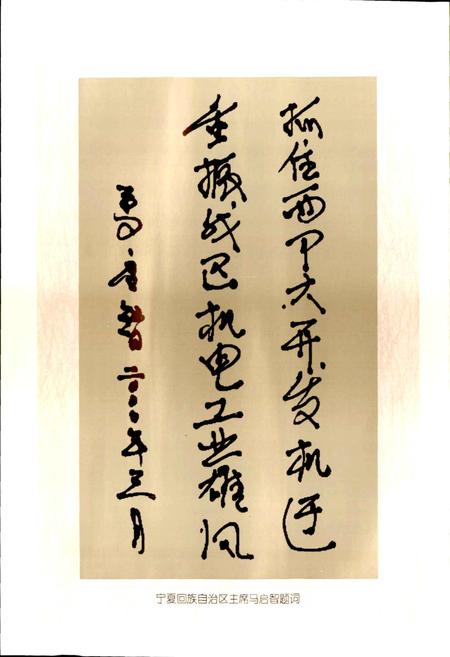 抓住西部大开发机遇
重振我区机电工业雄风
马启智二〇〇〇年三月
宁夏回族自治区主席马启智题词